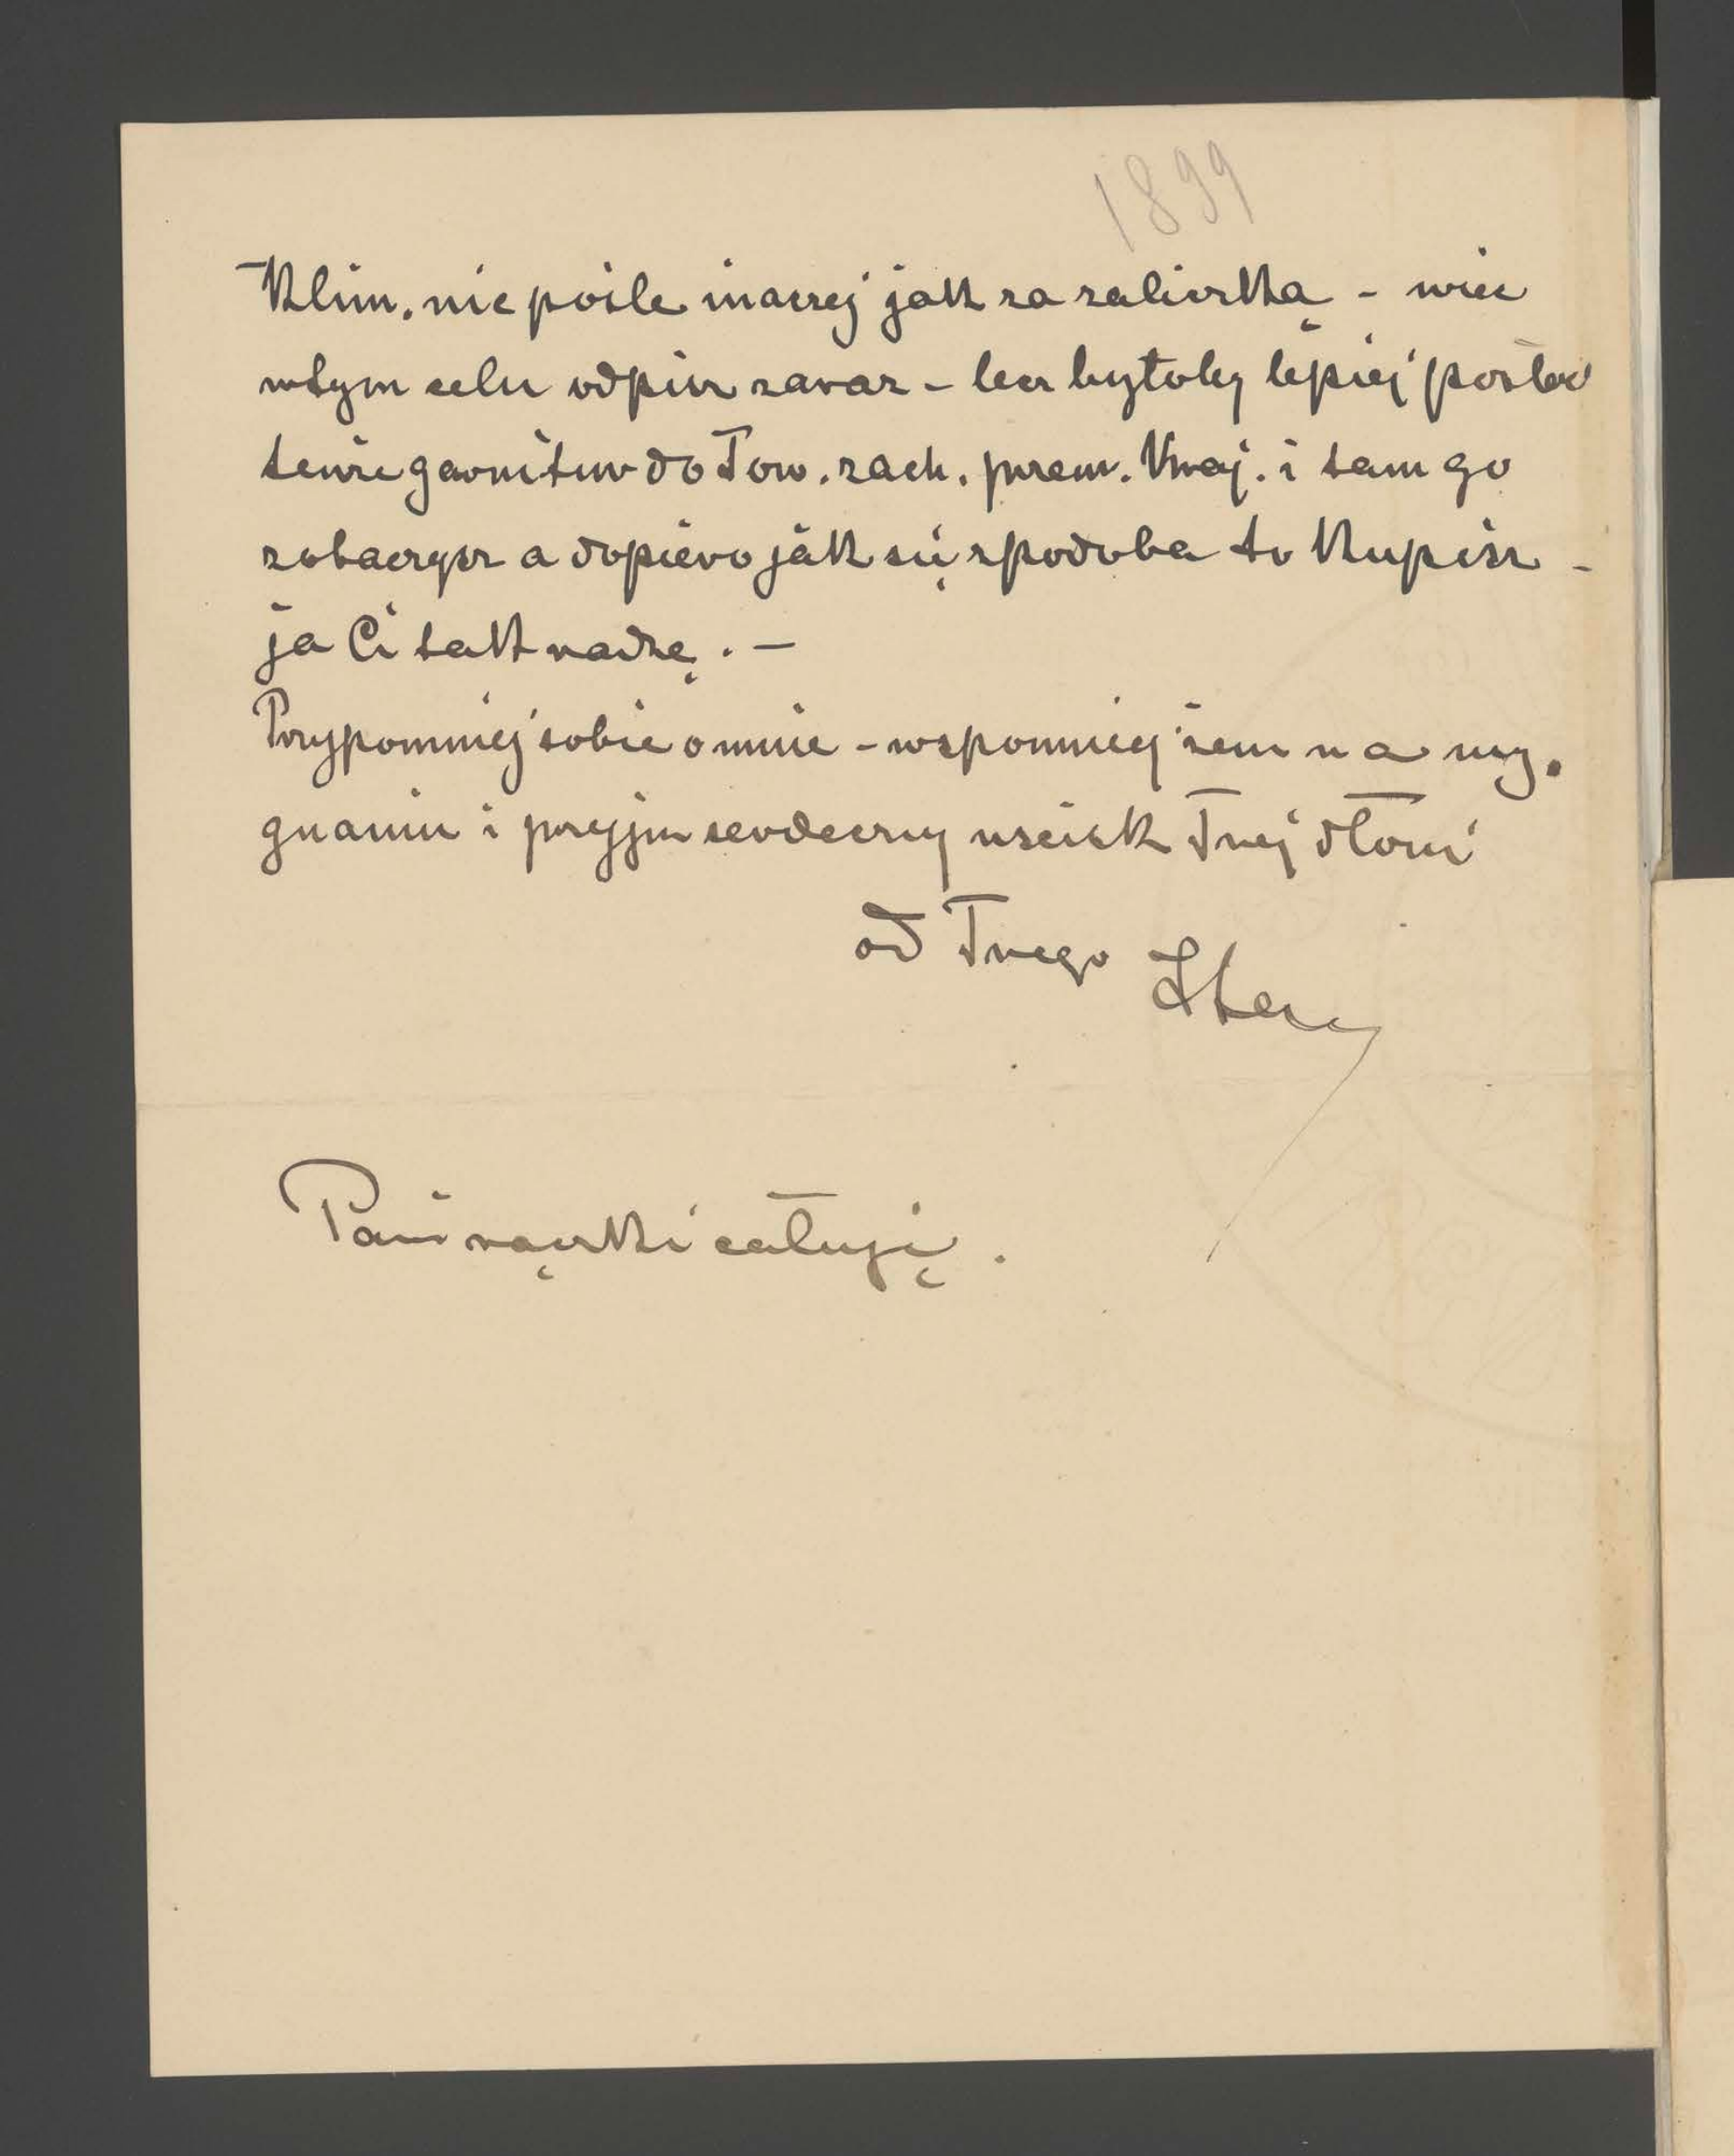 1899
Klim. nie pośle inaczej jak za zaliczką - więc
w tym celu odpisz zaraz - lecz byłoby lepiej posłać
tenże garnitur do Tow. zach. przem. kraj. i tam go
zobaczysz a dopiero jak się spodoba to kupisz -
ja Ci tak radzę. -
Przypomniej sobie o mnie - wspomniej żem na wy-
gnaniu i przyjm serdeczny uścisk Twej dłoni
od Twego
Pani rączki całuję.